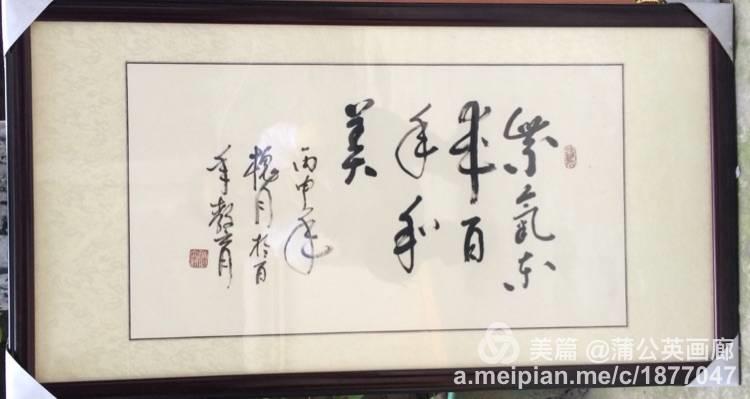 紫氣东
来百
年和
美
丙申年
槐月於百
年教育
美篇 @蒲公英画廊
a.meipian.me/c/1877047